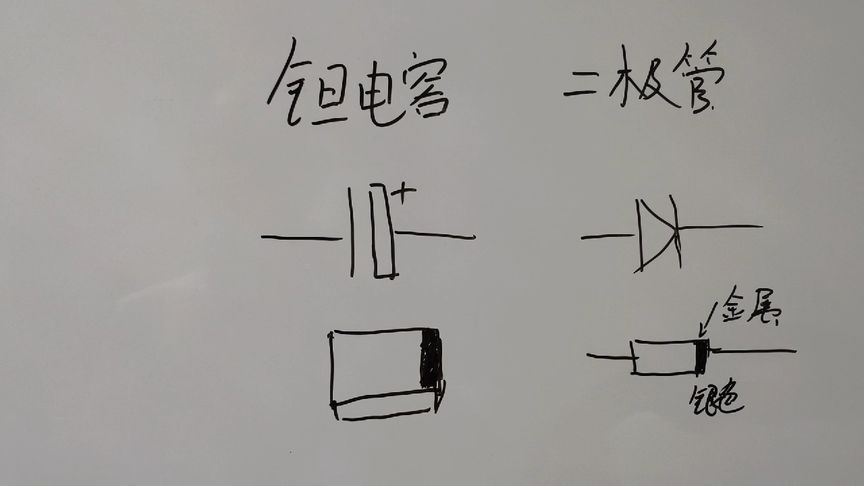 钽电容 二极管
+
金属
银色